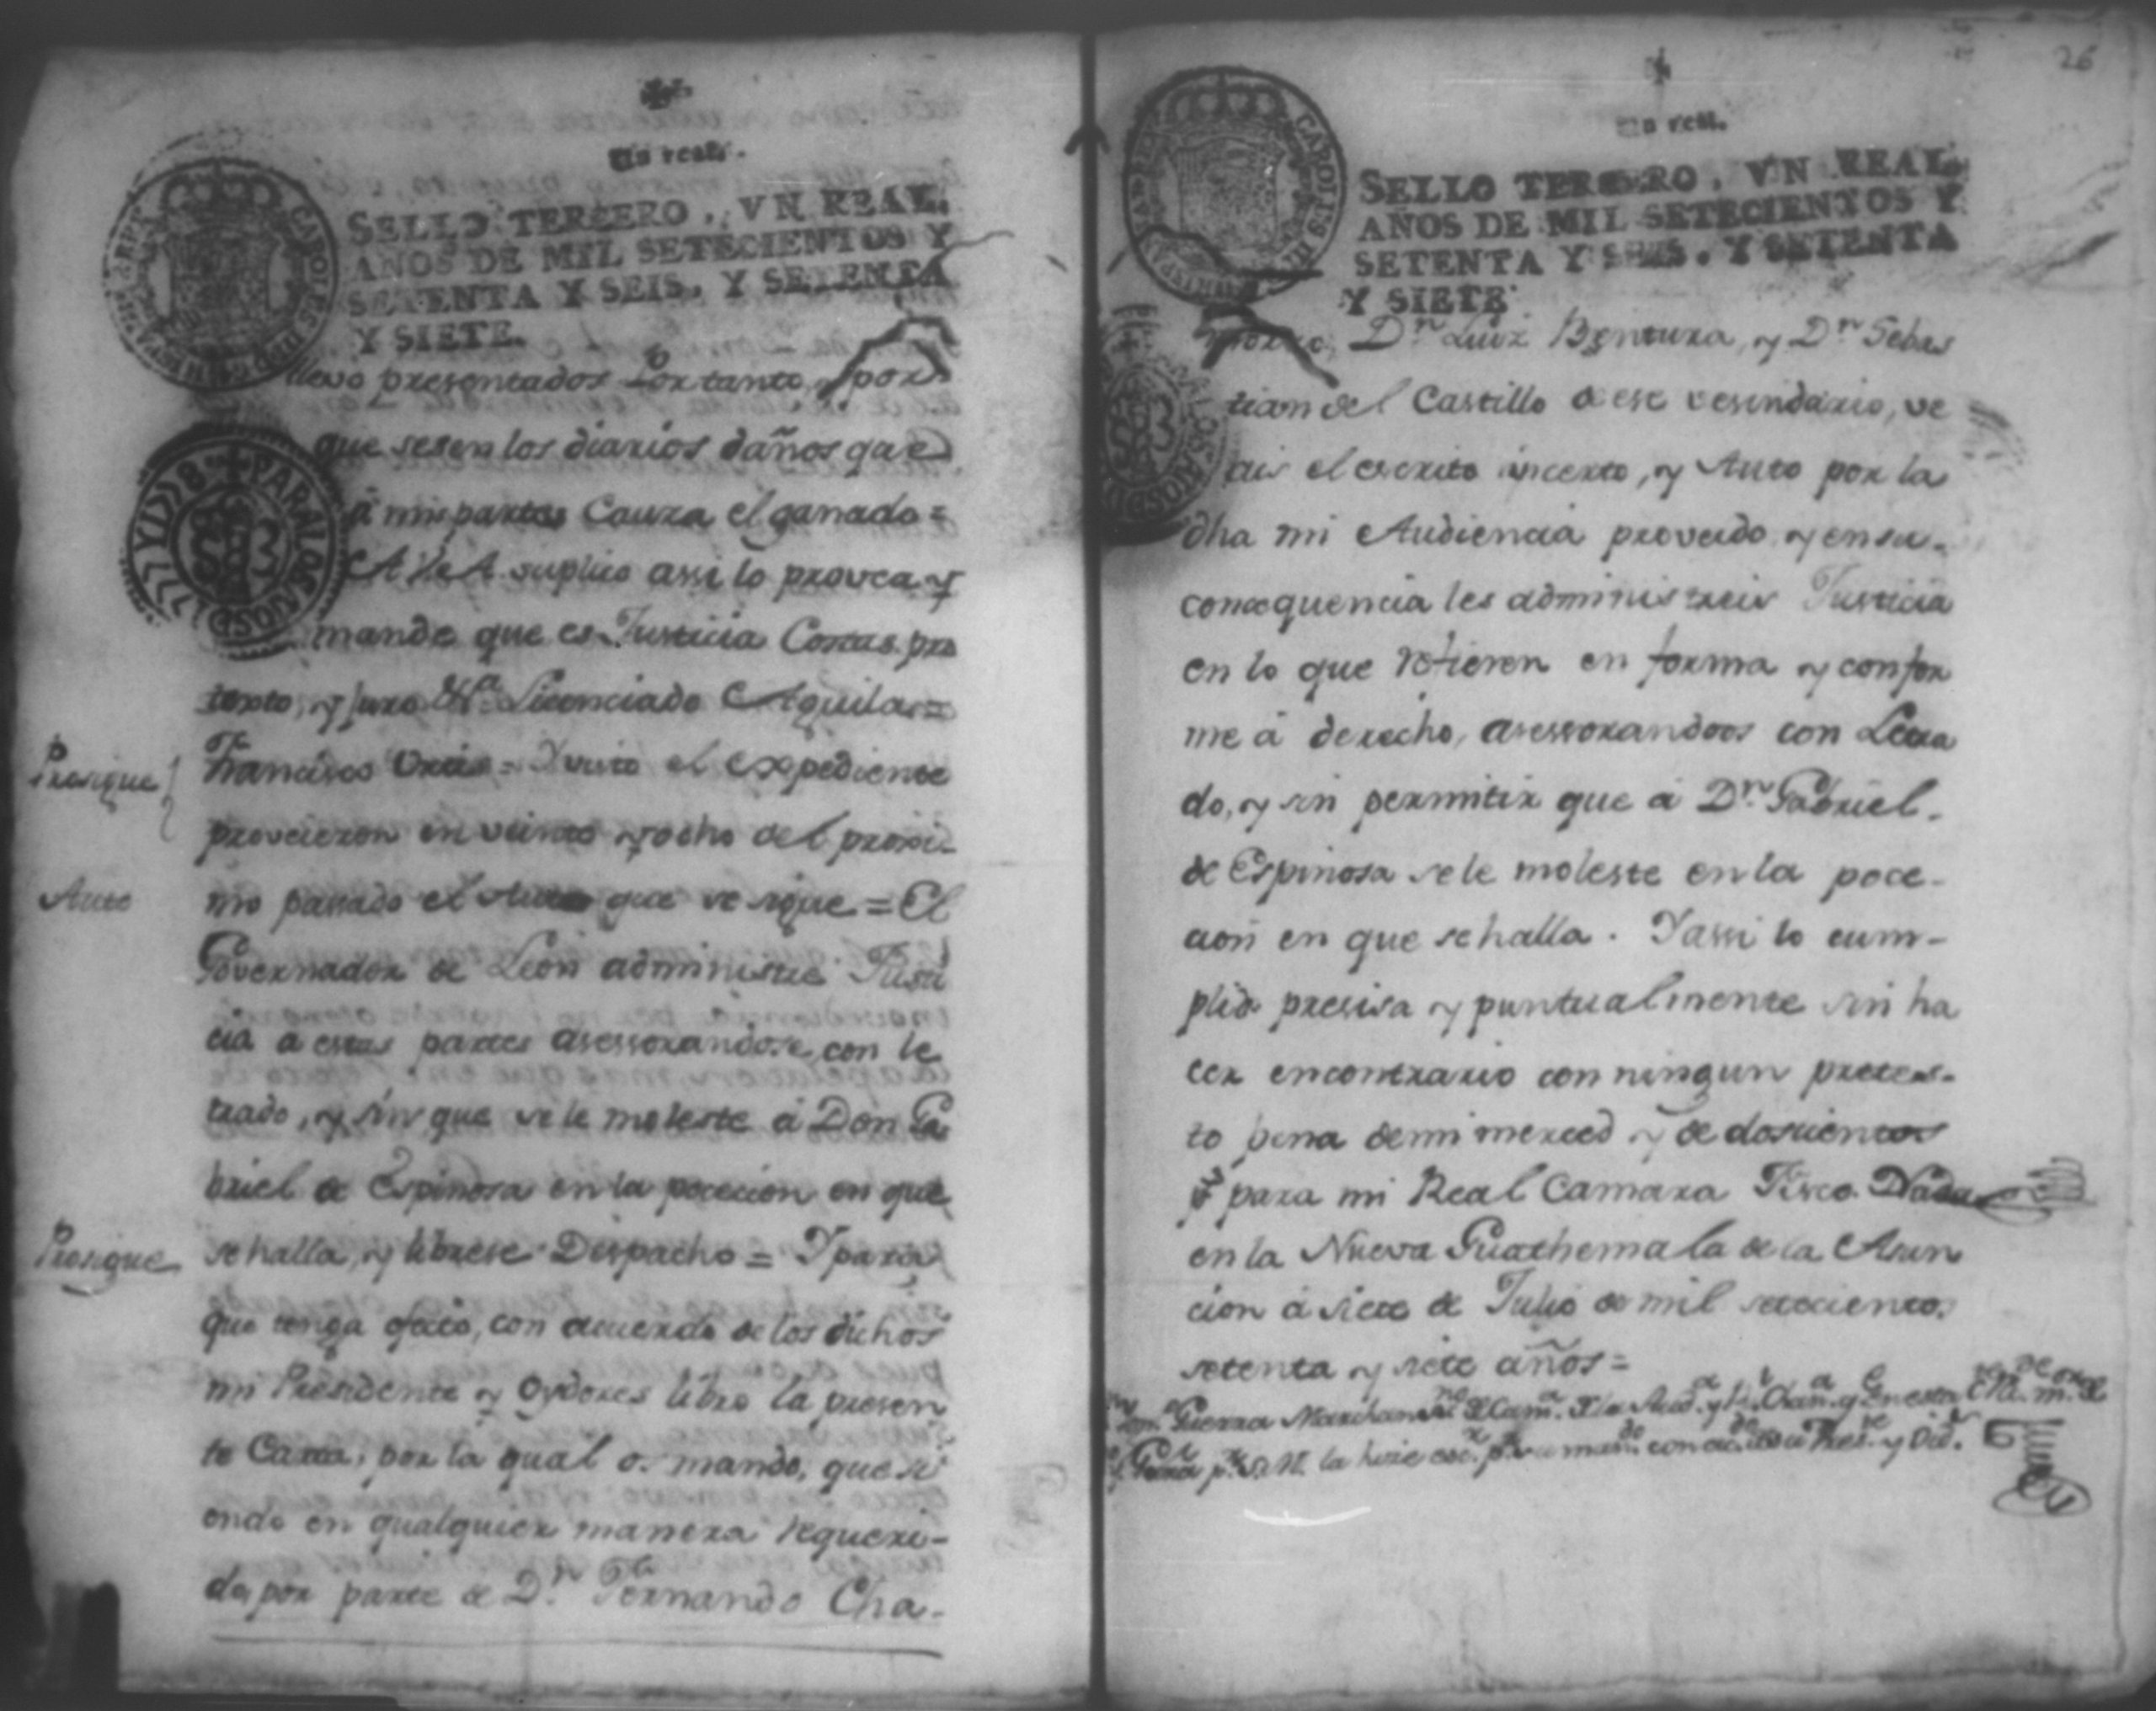 Un real.
SELLO TERCERO, VN REAL,
AÑOS DE MIL SETECIENTOS Y
SETENTA Y SEIS, Y SETENTA
Y SIETE.
llevo presentados Portanto, y por
que sesen los diarios daños que
à mis partes Cauza el ganado =
A V.A. suplico assi lo provea y
mande que es Justicia Costas pro
texto, y juro &a. Licenciado Aguilar =
Prosigue
Francisco = Y visto el Expediente
proveieron en veinte y ocho del proxi-
Auto
mo passado el Auto que se sigue = El
Governador de Leon administre Justi
cia a estas partes asessorandose, con le
trado, y sin que se le moleste á Don Ga
briel de Espinosa en la pocecion en que
Prosigue
se halla, y librese Despacho = Y para
que tenga efecto, con acuerdo de los dichos
mi Presidente y Oydores libro la presen
te Carta; por la qual os mando, que si
endo en qualquier manera requeri-
do, por parte de Dn. Fernando Cha-
26
Un real.
SELLO TERCERO, VN REAL,
AÑOS DE MIL SETECIENTOS Y
SETENTA Y SEIS, Y SETENTA
Y SIETE
Dn. Luiz Bentura, y Dn. Sebas
tian del Castillo de ese vesindario, ve
ais el escrito incerto, y Auto por la
dha mi Audiencia proveido y en su
concequencia les administreis Justicia
en lo que refieren en forma y confor
me á derecho, asessorandoos con Letra
do, y sin permitir que á Dn. Gabriel
de Espinosa se le moleste en la poce-
cion en que se halla. Y assi lo cum-
plid presisa y puntualmente sin ha
cer encontrario con ningun pretes-
to pena de mi merced y de dosientos
ps. para mi Real Camara Fisco. Dada
en la Nueva Guathemala de la Asun
cion á siete de Julio de mil setecientos
setenta y siete años =
Guerra Marchan de Cam.a de la Aud.a y Chan.a y en esta
la hize esc. p. su man.do con ac.do de su Pres.te y Oid.s